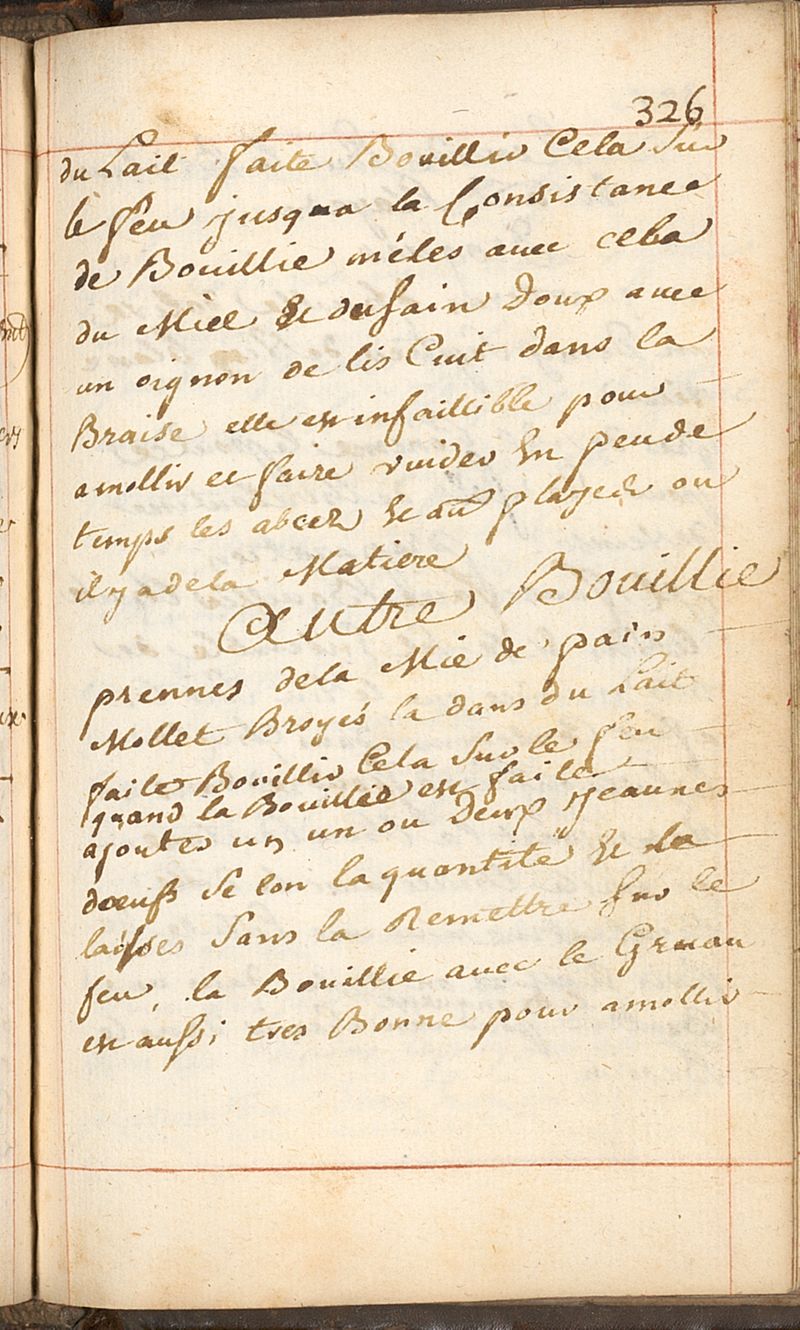 326
du Lait faite Bouillir Cela Sur
le feu jusqua la Consistance
de Bouillie méles avec cela
du Miel Et du sain Doux avec
un oignon de lis Cuit dans la
Braise elle est infaillible pour
amollir et faire vuider En peu de
temps les abcez Et aux playes ou
il y a de la Matiere
Autre Bouillie
prennes de la Mie de pain
Mollet Broyés la dans du Lait
faite Bouillir Cela Sur le feu
quand la Bouillie est faite
ajoutes un un ou Deux jeaunes
dœufs Se lon la quantité Et la
laisses Sans la Remettre Sur le
feu, la Bouillie avec le Gruau
est aussi tres Bonne pour amollir